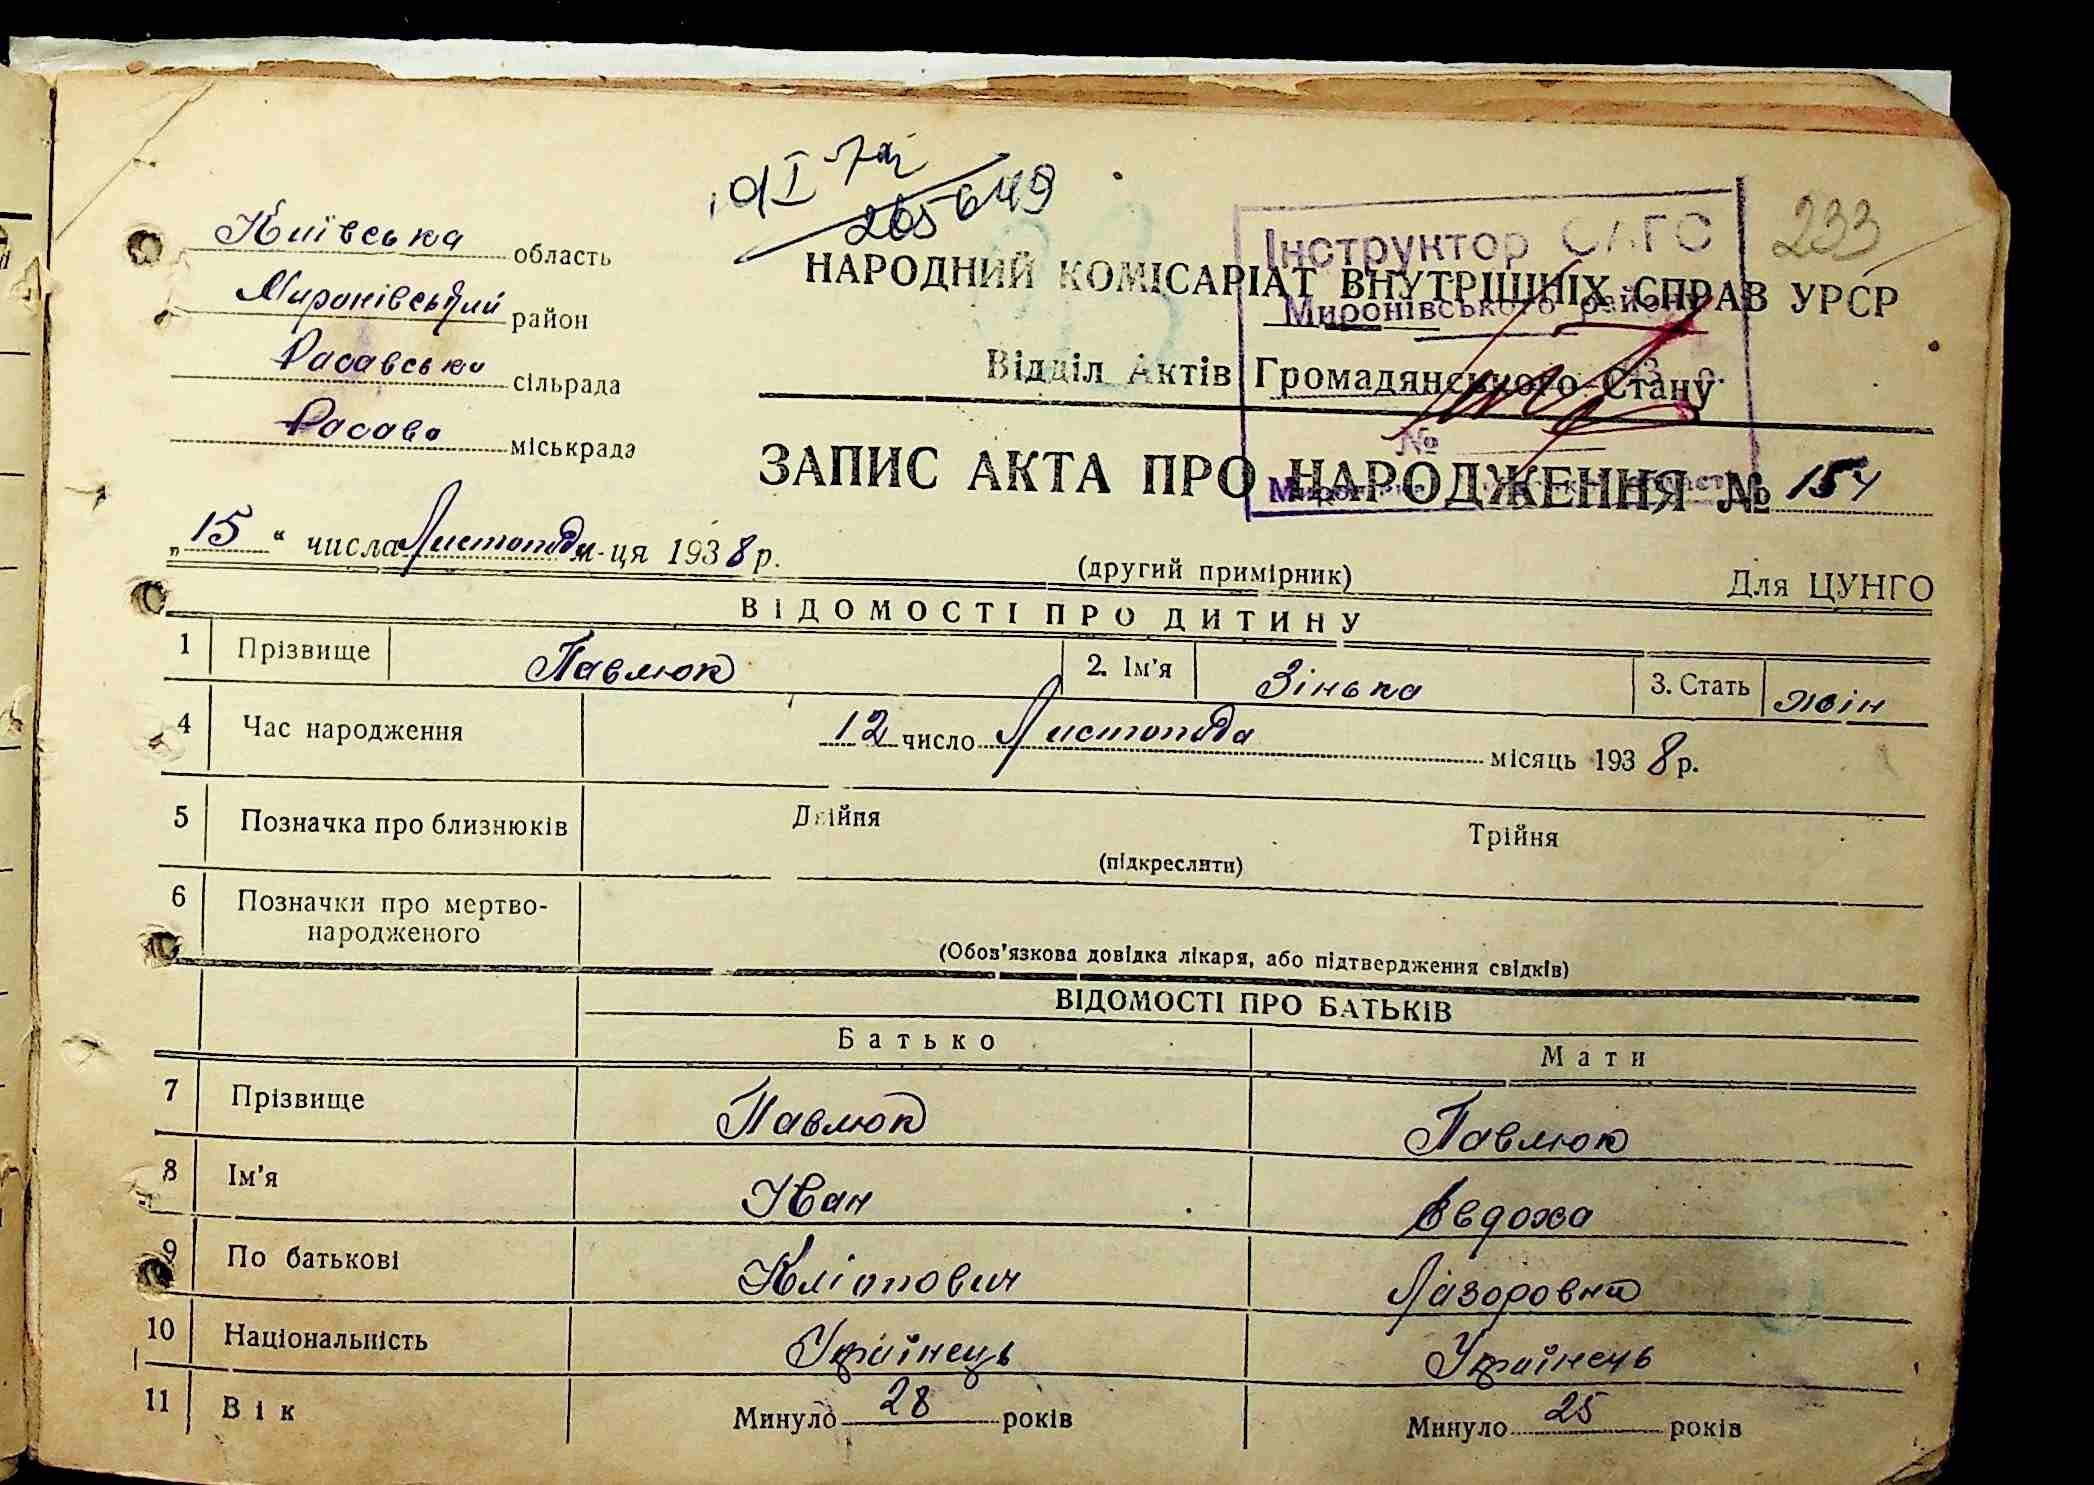 265649
233
Київська область
Миронівський район
Расавська сільрада
Расава міськрада
Інструктор САГС
Миронівського району
№
НАРОДНИЙ КОМІСАРІАТ ВНУТРІШНІХ СПРАВ УРСР
Відділ Актів Громадянського Стану
ЗАПИС АКТА ПРО НАРОДЖЕННЯ № 154
„15“ числа Листопада м-ця 1938 р.
(другий примірник)
Для ЦУНГО
ВІДОМОСТІ ПРО ДИТИНУ
1 Прізвище Павлюк 2. Ім'я Зінька 3. Стать жін
4 Час народження 12 число Листопада місяць 1938 р.
5 Позначка про близнюків Двійня Трійня
(підкреслити)
6 Позначки про мертво-
народженого
(Обов'язкова довідка лікаря, або підтвердження свідків)
ВІДОМОСТІ ПРО БАТЬКІВ
Батько Мати
7 Прізвище Павлюк Павлюк
8 Ім'я Іван Евдоха
9 По батькові Кліопович Лазоровна
10 Національність Українець Українець
11 Вік Минуло 28 років Минуло 25 років